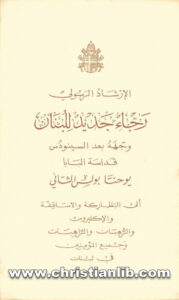 الإرشاد الرسولي
رجاء جديد للبنان
وجهه بعد السينودس
قداسة البابا
يوحنا بولس الثاني
إلى البطاركة والأساقفة
والإكليروس
والرهبان والراهبات
وجميع المؤمنين
في لبنان
www.christianlib.com